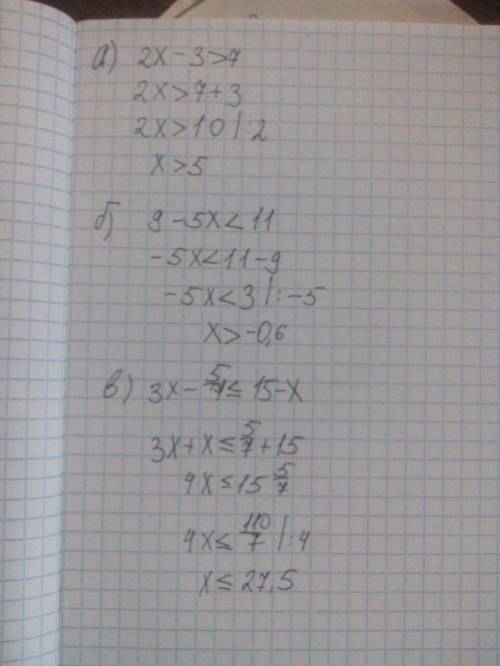 а) 2x - 3 > 7
2x > 7 + 3
2x > 10 | : 2
x > 5
б) 9 - 5x < 11
-5x < 11 - 9
-5x < 3 | : -5
x > -0,6
в) 3x - 5/7 ≤ 15 - x
3x + x ≤ 5/7 + 15
4x ≤ 15 5/7
4x ≤ 110/7 | : 4
x ≤ 27,5